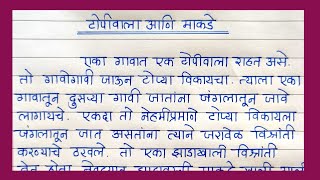 टोपीवाला आणि माकडे
एका गावात एक टोपीवाला राहत असे.
तो गावोगावी जाऊन टोप्या विकायचा. त्याला एका
गावातून दुसऱ्या गावी जातांना जंगलातून जावे
लागायचे. एकदा तो नेहमीप्रमाणे टोप्या विकायला
जंगलातून जात असतांना त्याने जरावेळ विश्रांती
करण्याचे ठरवले. तो एका झाडाखाली विश्रांती